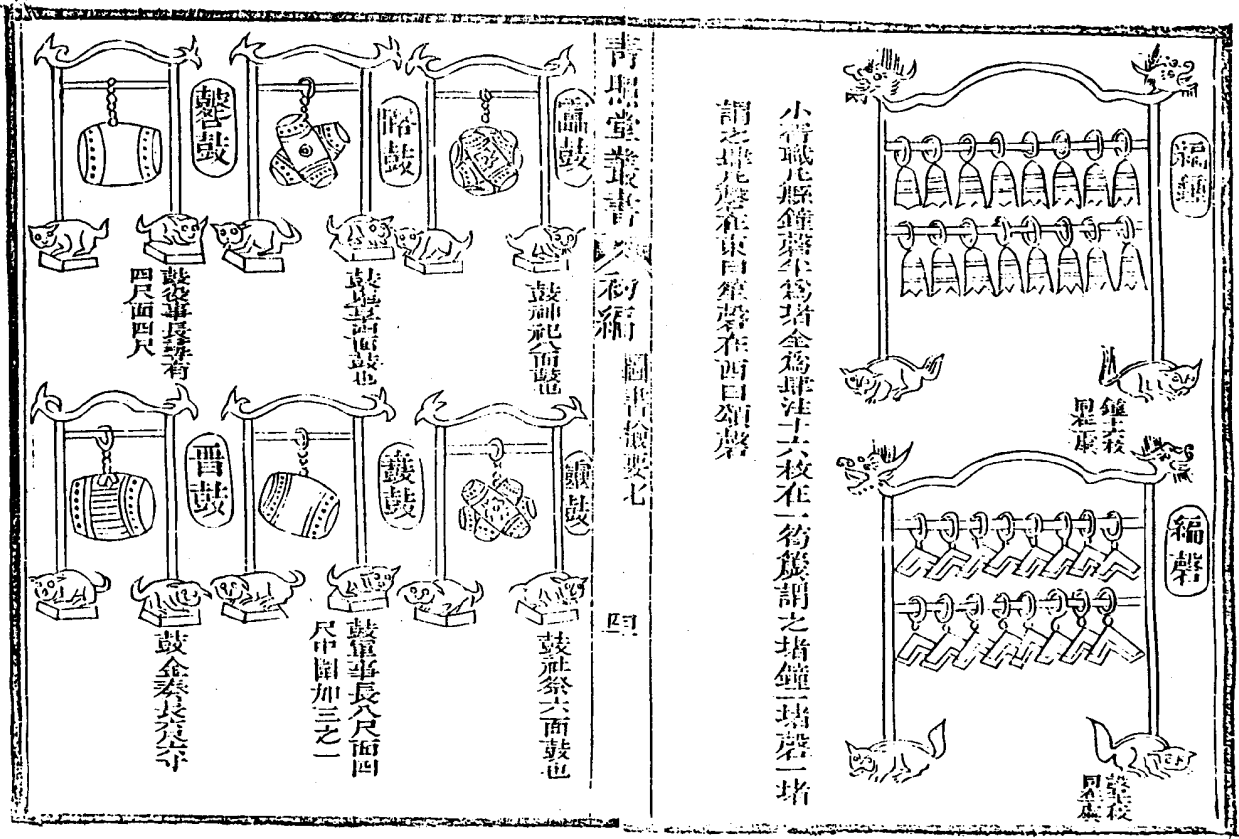 編鐘
鐘十六枚
同在一虡
編磬
磬十六枚
同在一虡
小胥職凡縣鐘磬半為堵全為肆注十六枚在一筍簴謂之堵鐘一堵磬一堵
謂之肆凡磬在東曰笙磬在西曰頌磬
青照堂叢書
初編
圖書檢要七
四
靁鼓
鼓神祀八面鼓也
路鼓
鼓鬼享四面鼓也
鼛鼓
鼓役事長尋有
四尺面四尺
靈鼓
鼓社祭六面鼓也
鼖鼓
鼓軍事長八尺面四
尺中圍加三之一
晋鼓
鼓金奏長六尺六寸